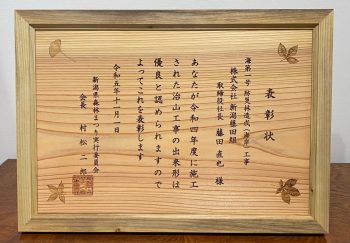 表彰状
海第一号 防災林造成(海岸)工事
株式会社 新潟藤田組
取締役社長 藤田直也 様
あなたが令和四年度に施工
された治山工事の出来形は
優良と認められますので
よってこれを表彰します
令和五年十一月一日
新潟県森林まつり実行委員会
会長 村松二郎